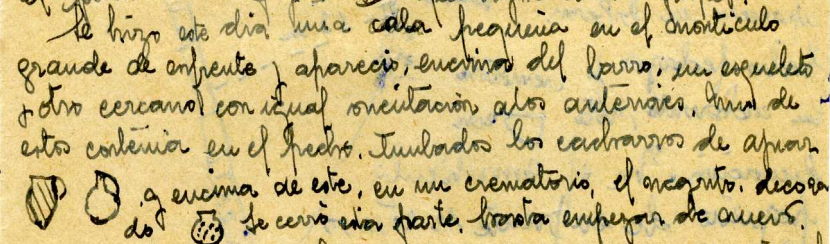 Se hizo este dia una cala pequeña en el montículo
grande de enfrente y aparecio, encima del barro, un esqueleto
y otro cercano con igual orientación a los anteriores. Uno de
estos contenia en el pecho. Tumbados los cacharros de
y encima de este, en un crematorio, el negrito. decora
do Se cerró esta parte, hasta empezar de nuevo.